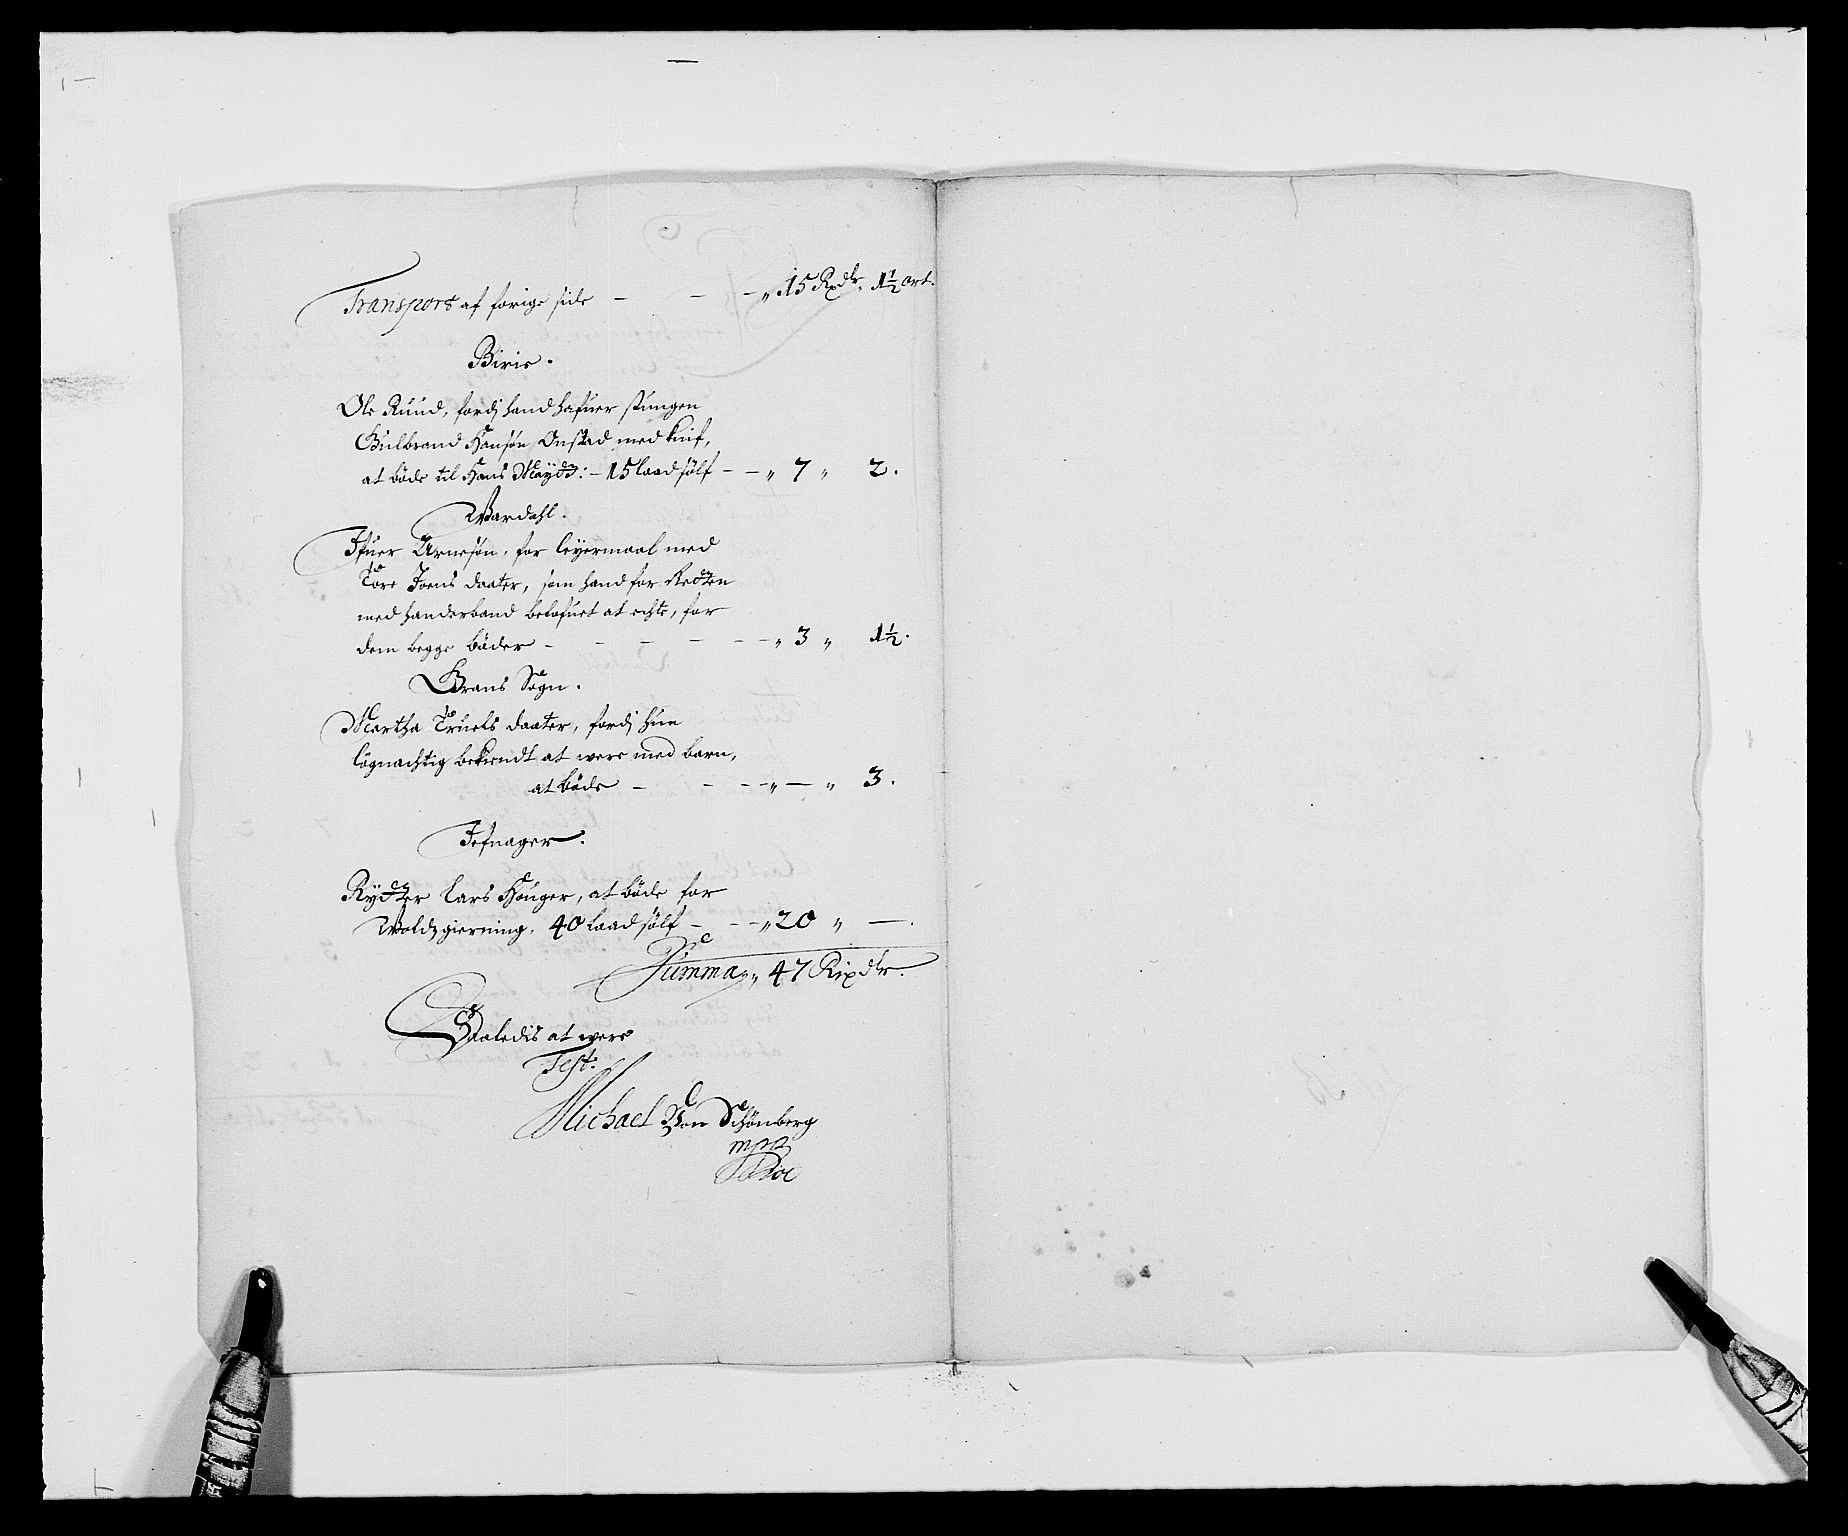 Transport af forige side — — — „ 15 Rxdlr. 1½ ort.
Birie.
Ole Ruud, fordj hand hafuer stungen
Gulbrand Hansøn Onstad med knif,
at bøde til Hans Mayᵗᵗ: – 15 laad sølf – – „ 7 „ 2.
Wardahl.
Ifuer Arnesøn, for leyermaal med
Tore Joens daater, som hand for Retten
med handerband belofuet at echte, for
dem begge bøder – – – – – – „ 3 „ 1½.
Grans Sogn.
Martha Truels daater, fordj hun
løgnachtig bekiendt at were med barn,
at bøde – – – – „ — „ 3.
Jefnager.
Rytter Lars Houger, at bøde for
Woldzgierning, 40 laad sølf – – – „ 20 „ —.
Summa „ 47 Rixdlr.
Saaledis at were
Test:
Michael Von Schønberg
mpp